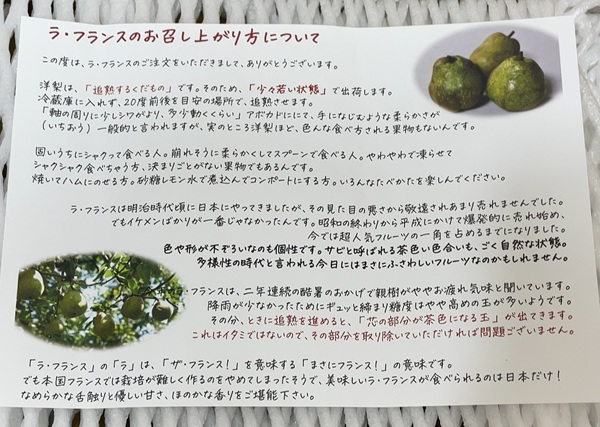 ラ・フランスのお召し上がり方について
この度は、ラ・フランスのご注文をいただきまして、ありがとうございます。
洋梨は、「追熟するくだもの」です。そのため、「少々若い状態」で出荷します。
冷蔵庫に入れず、20度前後を目安の場所で、追熟させます。
「軸の周りに少しシワがより、多少動くくらい」アボカドににて、手になじむような柔らかさが
(いちおう)一般的と言われますが、実のところ洋梨ほど、色んな食べ方される果物もないんです。
固いうちにシャクって食べる人。崩れそうに柔らかくしてスプーンで食べる人。やわやわで凍らせて
シャクシャク食べちゃう方、決まりごとがない果物でもあるんです。
焼いてハムにのせる方。砂糖レモン水で煮込んでコンポートにする方。いろんなたべかたを楽しんでください。
ラ・フランスは明治時代頃に日本にやってきましたが、その見た目の悪さから敬遠されあまり売れませんでした。
でもイケメンばかりが一番じゃなかったんです。昭和の終わりから平成にかけて爆発的に売れ始め、
今では超人気フルーツの一角を占めるまでになりました。
色や形が不ぞろいなのも個性です。サビと呼ばれる茶色い色合いも、ごく自然な状態。
多様性の時代と言われる今日にはまさにふさわしいフルーツなのかもしれません。
・フランスは、二年連続の酷暑のおかげで親樹がややお疲れ気味と聞いています。
降雨が少なかったためにギュッと締まり糖度はやや高めの玉が多いようです。
その分、ときに追熟を進めると、「芯の部分が茶色になる玉」が出てきます。
これはイタミではないので、その部分を取り除いていただければ問題ございません。
「ラ・フランス」の「ラ」は、「ザ・フランス!」を意味する「まさにフランス!」の意味です。
でも本国フランスでは栽培が難しく作るのをやめてしまったそうで、美味しいラ・フランスが食べられるのは日本だけ!
なめらかな舌触りと優しい甘さ、ほのかな香りをご堪能下さい。